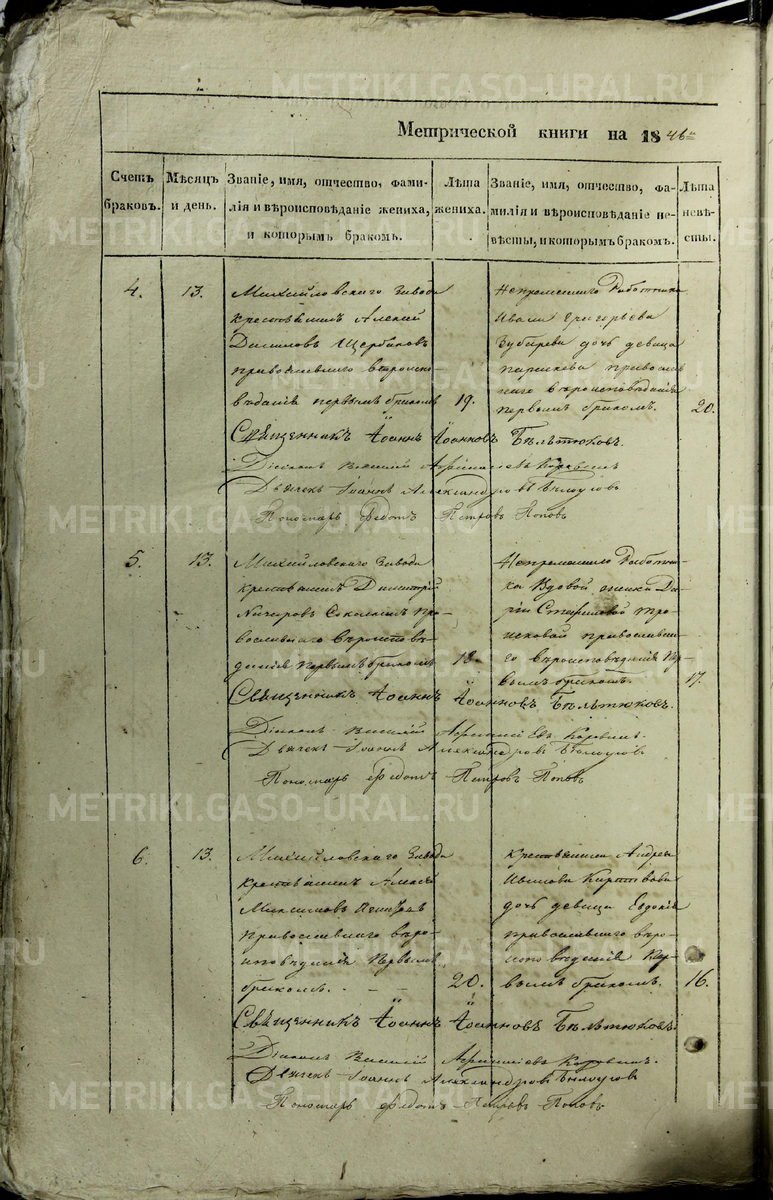 METRIKI.GASO-URAL.RU
Метрической книги на 1846
Счетъ браковъ.
Мѣсяцъ и день.
Званіе, имя, отчество, фами-
лія и вѣроисповѣданіе жениха,
и которымъ бракомъ.
Лѣта жениха.
Званіе, имя, отчество, фа-
милія и вѣроисповѣданіе не-
вѣсты, и которымъ бракомъ.
Лѣта невѣ-
сты.
4.
13.
Михайловскаго Завода
крестьянинъ Алексій
Даниловъ Щербаковъ
православнаго вѣроиспо-
вѣданія первымъ бракомъ
19.
Непремѣннаго Работника
Ивана Григорьева
Зубарева дочь девица
Параскева православ-
наго вѣроисповѣданія
первымъ бракомъ.
20.
Священникъ Іоаннъ Іоанновъ Бѣльтюковъ.
Діаконъ Василій
Дьячекъ Іоаннъ Александровъ Бѣлоусовъ
Пономарь Федотъ Петровъ Поповъ
5.
13.
Михайловскаго Завода
крестьянинъ Димитрій
Соколкинъ Пра-
вославнаго Вѣроисповѣ-
данія первымъ бракомъ
18.
Непремѣннаго Работни-
ка
православна-
го вѣроисповѣданія пер-
вымъ бракомъ.
17.
Священникъ Іоаннъ Іоанновъ Бѣльтюковъ.
Діаконъ Василій
Дьячекъ Іоаннъ Александровъ Бѣлоусовъ
Пономарь Федотъ Петровъ Поповъ
6.
13.
Михайловскаго Завода
крестьянинъ Алексѣй
Максимовъ
православнаго вѣро-
исповѣданія первымъ
бракомъ.
20.
крестьянина Андрея
Иванова
дочь девица Евдокія
православнаго вѣро-
исповѣданія пер-
вымъ бракомъ.
16.
Священникъ Іоаннъ Іоанновъ Бѣльтюковъ.
Діаконъ Василій
Дьячекъ Іоаннъ Александровъ Бѣлоусовъ
Пономарь Федотъ Петровъ Поповъ